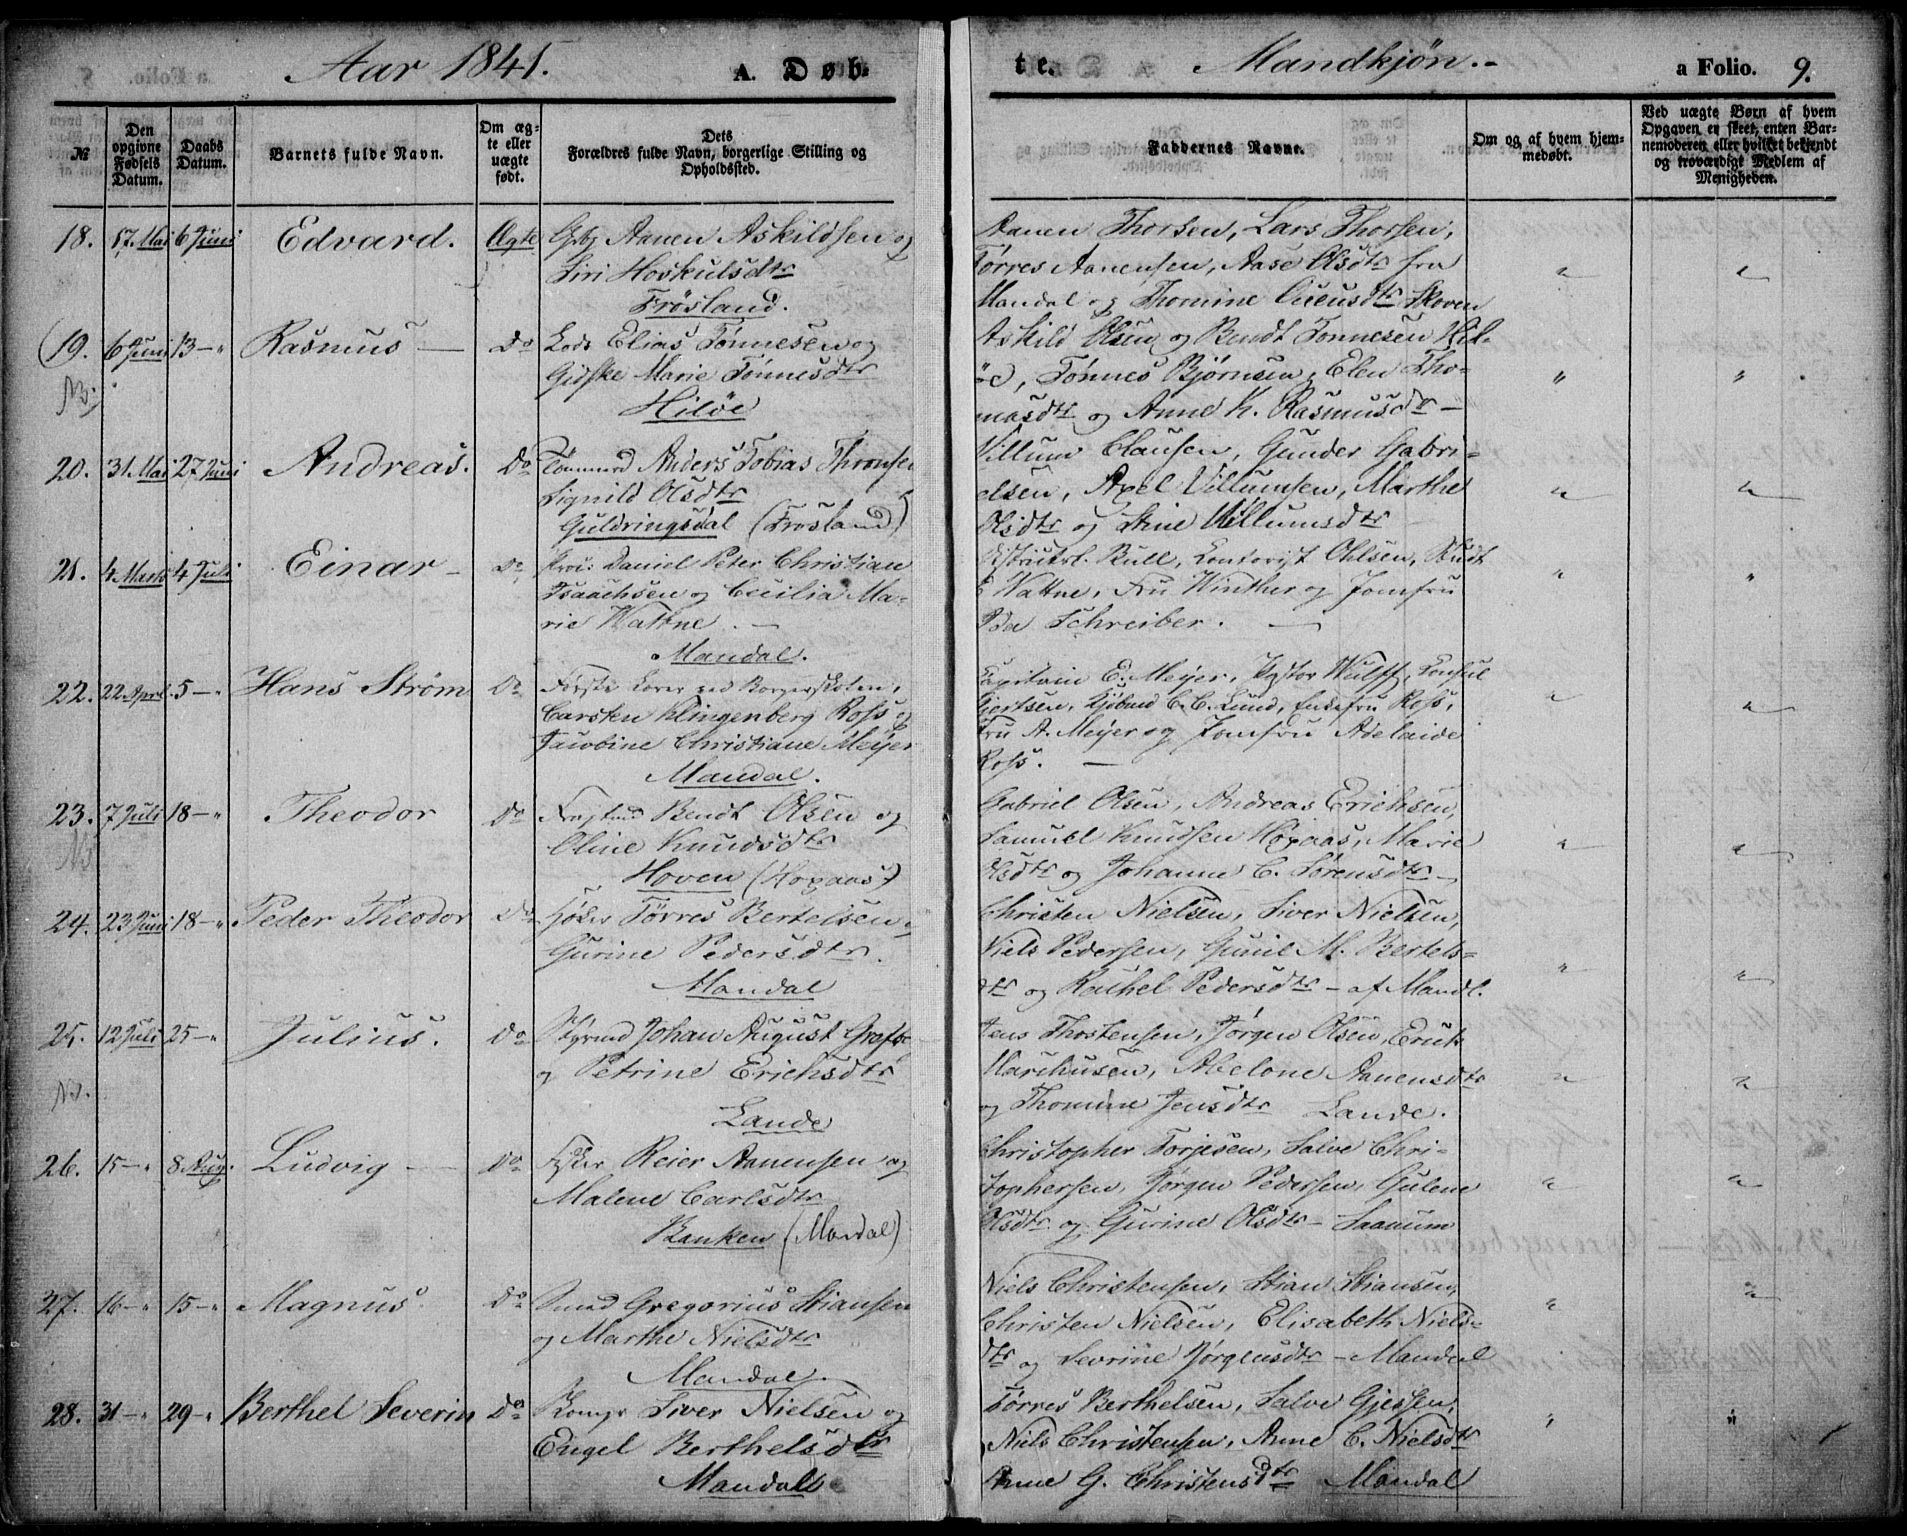 Aar 1841. A. Døb-
te. Mandkjøn.- a Folio. 9.
№
Den opgivne Fødsels Datum.
Daabs Datum.
Barnets fulde Navn.
Om ægte eller uægte født.
Dets Forældres fulde Navn, borgerlige Stilling og Opholdssted.
Faddernes Navne.
Om og af hvem hjemmedøbt.
Ved uægte Børn af hvem Opgaven er skeet, enten Barnemoderen eller hvilket bekjendt og troværdigt Medlem af Menigheden.
18. 17. Mai 6 Juni Edvard. Ægte Gbr Aanen Askildsen og
Siri Hoskulsdtr
Frøsland.
Aanen Thorsen, Lars Thorsen,
Tørres Aanensen, Aase Olsdtr fra
Mandal og Thomine Skoven
19. 6 Juni 13 — " Rasmus — Do Lods Elias Tønnesen og
Gidske Marie Tønnesdtr
Hilöe
Askild Olsen og Bendt Tonnesen Hil-
öe, Tønnes Bjørnsen, Elen Tho-
masdtr og Anne K. Rasmusdtr —
20. 31. Mai 27 Juni Andreas. Do Tömmermd Anders Tobias Thronsen
Signild Olsdtr
Guldringsdal (Frosland)
Villum Clausen, Gunder Gabri-
elsen, Axel Villumsen, Marthe
Olsdtr og Stine Villumsdtr
21. 4 Marts 4 Juli Einar — Do Daniel Peter Christian
Isaachsen og Cecilia Ma-
rie Wattne. —
Mandal.
Bull, Contorist Ohlsen, Studt
Wattne, Fru Winther og Jomfru
Ida Schreiber. —
22. 22 April 5 — " Hans Strøm Do Første Lærer ved Borgerskolen,
Carsten Klingenberg Ross og
Jacobine Christiane Meyer
Mandal.
Capitain E. Meyer, Pastor Wulff, Consul
Gjertsen, Kjøbmd C. C. Lund, Enkefru Ross,
Fru A. Meyer og Jomfru Adelaide
Ross. —
23. 7 Juli 18 — " Theodor Do Bendt Olsen og
Oline Knudsdtr
Hoven (Hoxaas)
Gabriel Olsen, Andreas Erichsen,
Samuel Knudsen Hoxaas, Marie
Olsdtr og Johanne C. Sørensdtr —
24. 23 Juni 18 — " Peder Theodor Do Tørres Bertelsen og
Gurine Pedersdtr.
Mandal
Christen Nielsen, Siver Nielsen,
Niels Pedersen, Gunil M. Bertels-
dtr og Rachel Pedersdtr — af Mandl.
25. 12 Juli 25 — " Julius. Do Styrmd Johan August
og Petrine Erichsdtr
Lande
Jens Thostensen, Jørgen Olsen, Erich
Marchusen, Abelone Aanensdtr
og Thomine Jensdtr Lande.
26. 15 — " 8 Aug. Ludvig — Do Reier Aanensen og
Malene Carlsdtr
Banken (Mandal)
Christopher Torjesen, Salve Chri-
stophersen, Jørgen Pedersen, Gulene
Olsdtr og Gurine Olsdtr — Sanum
27. 16 — " 15 — " Magnus. Do Smed Gregorius Stiansen
og Marthe Nielsdtr
Mandal.
Niels Christensen, Stian Stiansen,
Christen Nielsen, Elisabeth Niels-
dtr og Sevrine Jørgensdtr — Mandal
28. 31 — " 29 — " Berthel Severin Do Siver Nielsen og
Engel Berthelsdtr
Mandal
Tørres Berthelsen, Salve Gjessen,
Niels Christensen, Anne C. Nielsdtr
Anne G. Christensdtr Mandal